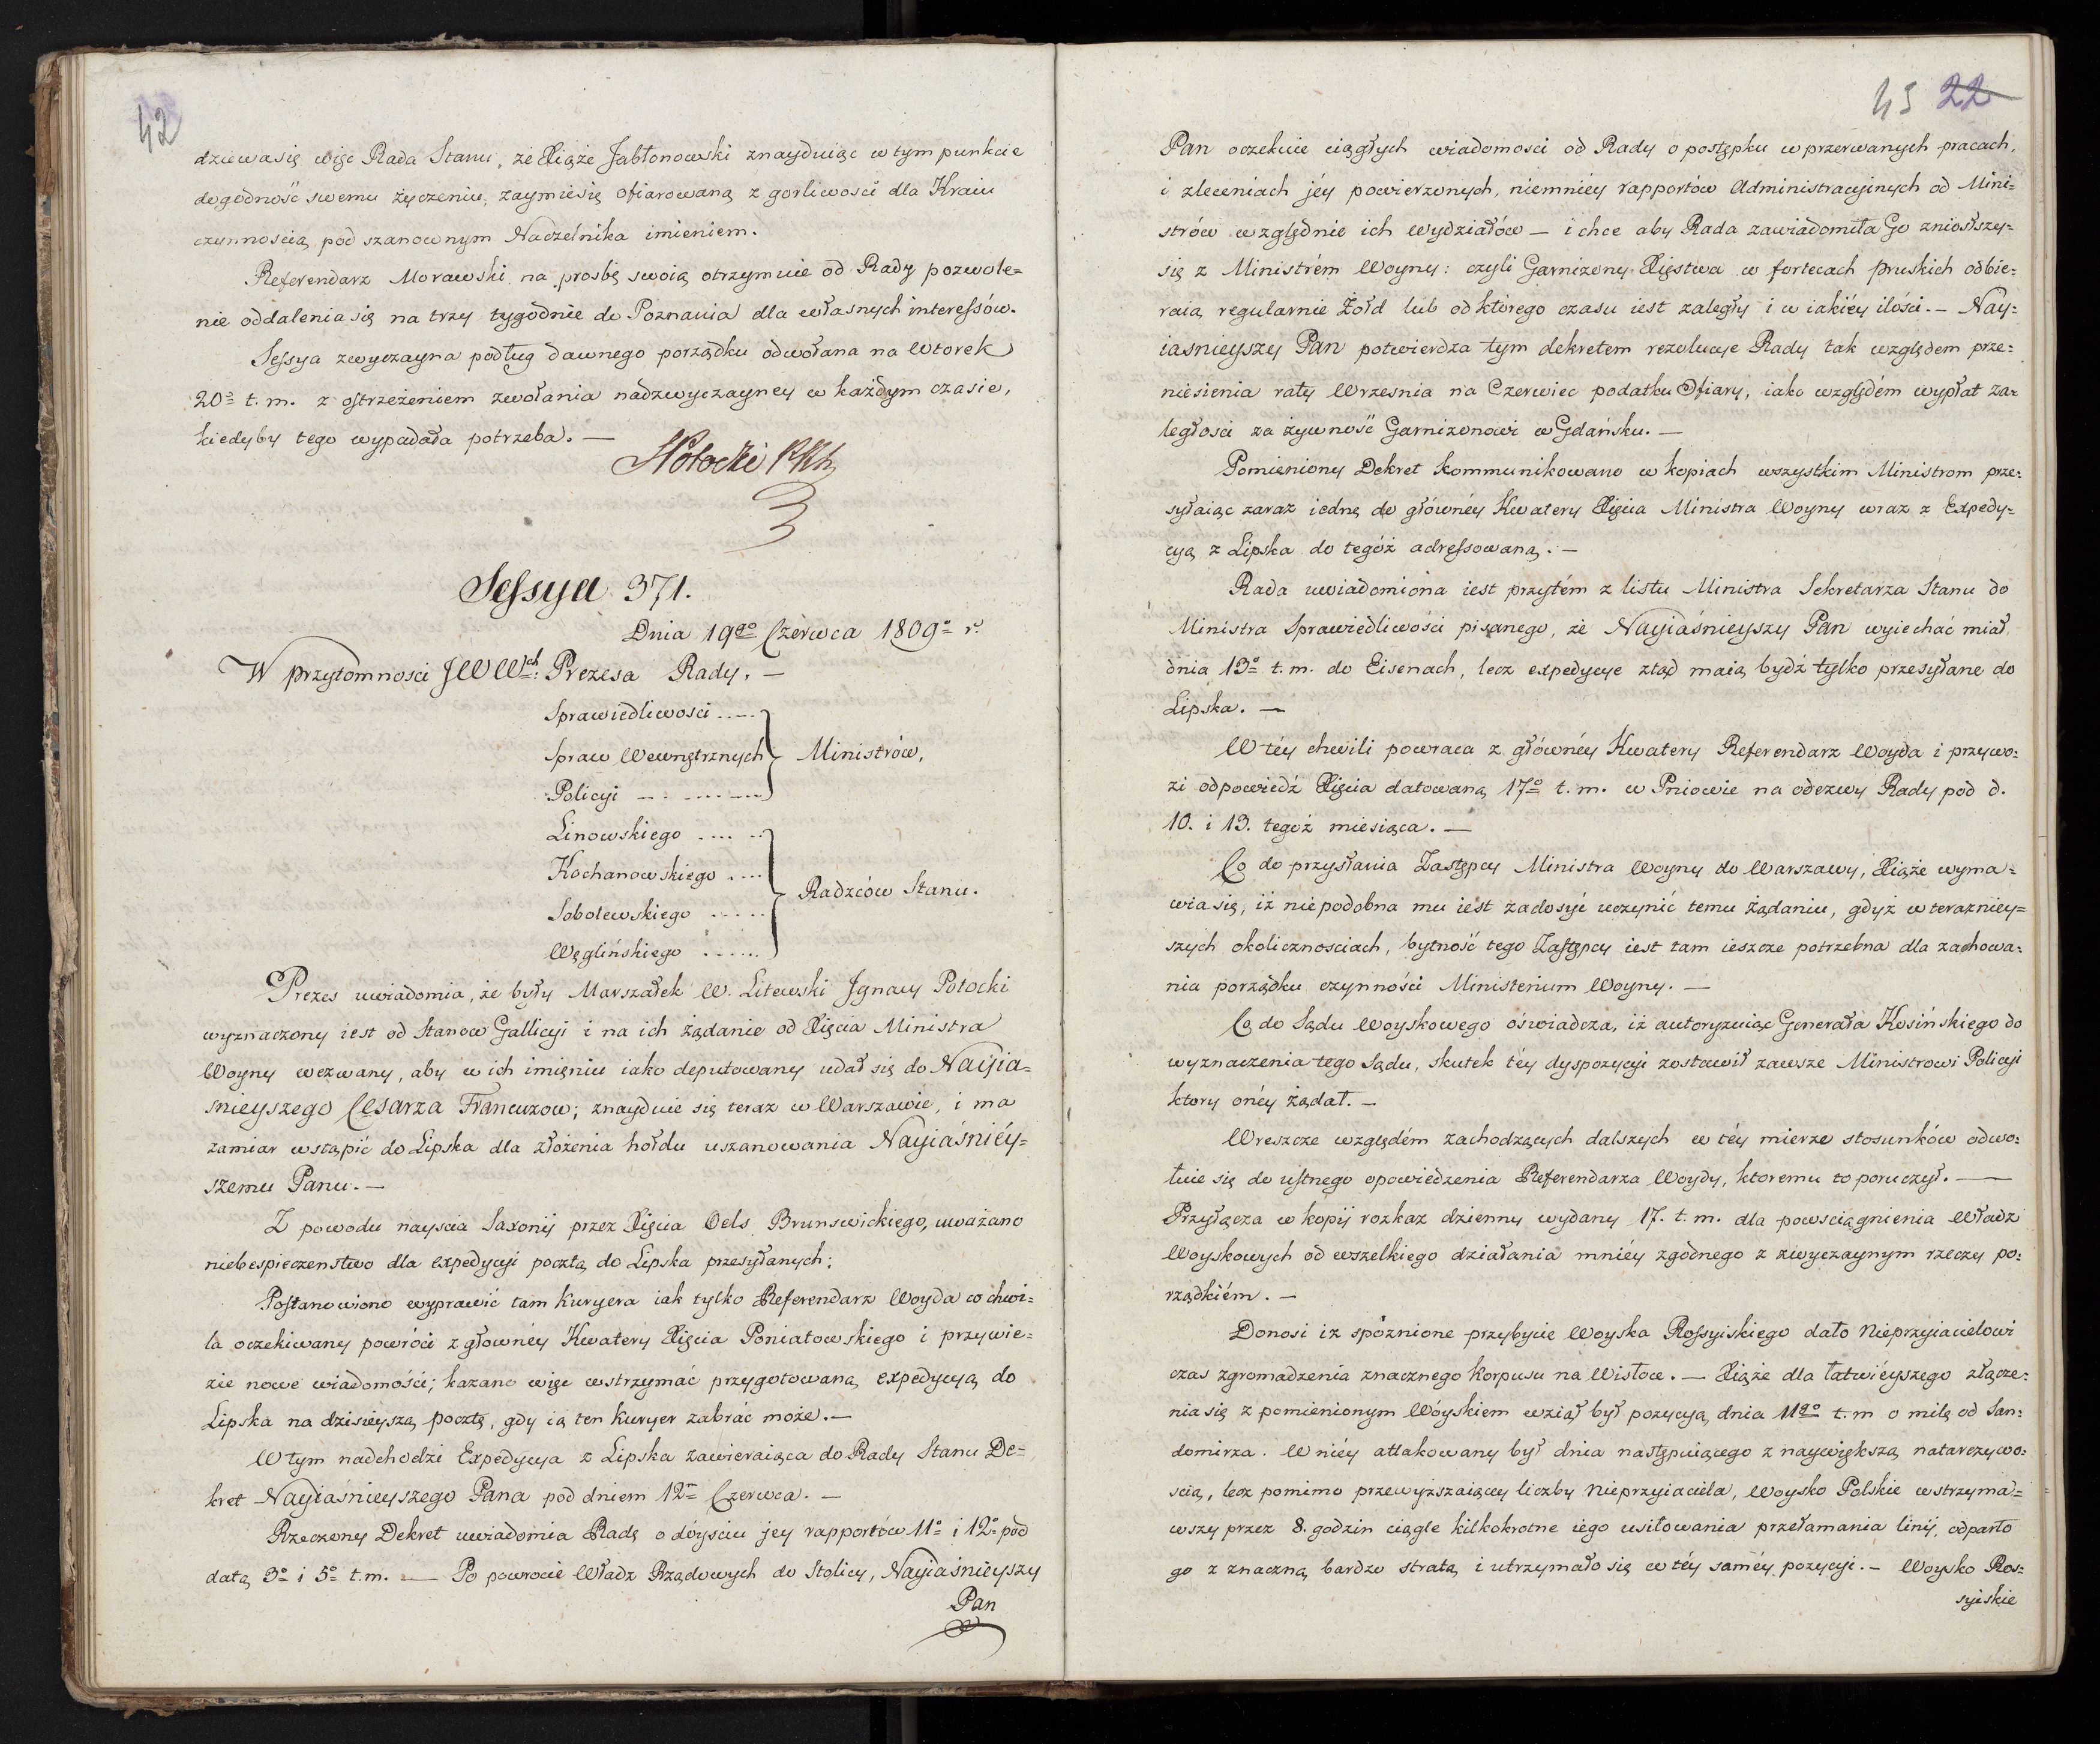 42
dziewasię więc Rada Stanu, że Xiąże Jabłonowski znayduiąc w tym punkcie
dogodność swemu życzeniu, zaymiesię ofiarowaną z gorliwości dla Kraiu
czynnością pod szanownym Naczelnika imieniem.
Referendarz Morawski na prosbę swoią otrzymuie od Rady pozwole=
nie oddalenia się na trzy tygodnie do Poznania dla własnych interessów.
Sessya zwyczayna podług dawnego porządku odwołana na Wtorek
20º t. m. z ostrzeżeniem zwołania nadzwyczayney w każdym czasie,
kiedyby tego wypadała potrzeba. —
Potocki
Sessya 371.
Dnia 19go Czerwca 1809º r.
W przytomnosci JWWch: Prezesa Rady. —
Sprawiedliwosci ....
Spraw Wewnętrznych
Ministrów,
Policyi — . ........
Linowskiego .... ..
Kochanowskiego ....
Radzców Stanu.
Sobolewskiego .....
Węglińskiego ......
Prezes uwiadomia, że były Marszałek W. Litewski Jgnacy Potocki
wyznaczony iest od Stanow Gallicyi i na ich żądanie od Xięcia Ministra
Woyny wezwany, aby w ich imięniu iako deputowany udał się do Nayia=
snieyszego Cesarza Francuzow; znayduie się teraz w Warszawie, i ma
zamiar wstąpić do Lipska dla złożenia hołdu uszanowania Nayiaśniéy=
szemu Panu. —
Z powodu nayscia Saxonij przez Xięcia Oels Brunswickiego, uważano
niebespieczenstwo dla expedycyi pocztą do Lipska przesyłanych;
Postanowiono wyprawić tam Kuryera iak tylko Referendarz Woyda co chwi=
la oczekiwany powróci z głownéy Kwatery Xięcia Poniatowskiego i przywie=
zie nowe wiadomości; kazano więc wstrzymać przygotowaną expedycyą do
Lipska na dzisieyszą pocztę, gdy ią ten Kuryer zabrać może. —
W tym nadchodzi Expedycya z Lipska zawieraiąca do Rady Stanu De=
kret Nayiaśnieyszego Pana pod dniem 12º Czerwca. —
Rzeczony Dekret uwiadomia Radę o dóyściu jey rapportów 11º i 12º pod
datą 3º i 5º t. m. — Po powrocie Władz Rządowych do Stolicy, Nayiaśnieyszy
Pan
43 22
Pan oczekuie ciągłych wiadomosci od Rady o postępku w przerwanych pracach,
i zleceniach jéy powierzonych, niemniéy rapportów Administracyinych od Mini=
strów względnie ich wydziałów — i chce aby Rada zawiadomiła Go zniosłszy=
się z Ministrém Woyny: czyli Garnizony Xięstwa w fortecach pruskich odbie=
raią regularnie Żołd lub od którego czasu iest zaległy i w iakiéy ilości. — Nay=
iasnieyszy Pan potwierdza tym dekretem rezolucye Rady tak względem prze=
niesienia raty Wrzesnia na Czerwiec podatku Ofiary, iako względém wypłat za=
ległosci za żywność Garnizonowi w Gdańsku. —
Pomieniony Dekret kommunikowano w kopiach wszystkim Ministrom prze=
syłaiąc zaraz iednę do głównéy Kwatery Xięcia Ministra Woyny wraz z Expedy=
cyą z Lipska do tegóż adressowaną. —
Rada uwiadomiona iest przytém z listu Ministra Sekretarza Stanu do
Ministra Sprawiedliwości pisanego, że Nayiaśnieyszy Pan wyiechać miał
dnia 13º t. m. do Eisenach, lecz expedycye ztąd maią bydź tylko przesyłane do
Lipska. —
W téy chwili powraca z głównéy Kwatery Referendarz Woyda i przywo=
zi odpowiedź Xięcia datowaną 17º t. m. w Pniowie na odezwy Rady pod d.
10. i 13. tegoż miesiąca. —
Co do przysłania Zastępcy Ministra Woyny do Warszawy, Xiąże wyma=
wia się, iż niepodobna mu iest zadosyć uczynić temu żądaniu, gdyż w terazniey=
szych okolicznosciach, bytność tego Zastępcy iest tam ieszcze potrzebna dla zachowa=
nia porządku czynności Ministerium Woyny. —
Co do Sądu Woyskowego oświadcza, iż autoryzuiąc Generała Kosińskiego do
wyznaczenia tego Sądu, skutek téy dyspozycyi zostawił zawsze Ministrowi Policyi
ktory onéy żądał. —
Wreszcze względém zachodzących dalszych w téy mierze stosunków odwo=
łuie się do ustnego opowiedzenia Referendarza Woydy, ktoremu to poruczył. —
Przyłącza w kopij rozkaz dzienny wydany 17. t. m. dla powsciągnienia Władz
Woyskowych od wszelkiego działania mniéy zgodnego z zwyczaynym rzeczy po=
rządkiém. —
Donosi iz spóznione przybycie Woyska Rossyiskiego dało Nieprzyiacielowi
czas zgromadzenia znacznego Korpusu na Wisłoce. — Xiąże dla łatwiéyszego złącze=
nia się z pomienionym Wóyskiem wziął był pozycyą dnia 11go t. m o milę od San=
domirza. W niéy attakowany był dnia następuiącego z naywiększą natarczywo=
scią, lecz pomimo przewyższaiącey liczby Nieprzyiaciela, Woysko Polskie wstrzyma=
wszy przez 8. godzin ciągle kilkokrotne iego usiłowania przełamania linij, odparło
go z znaczną bardzo stratą i utrzymało się w téy saméy pozycyi. — Woysko Ros=
syiskie